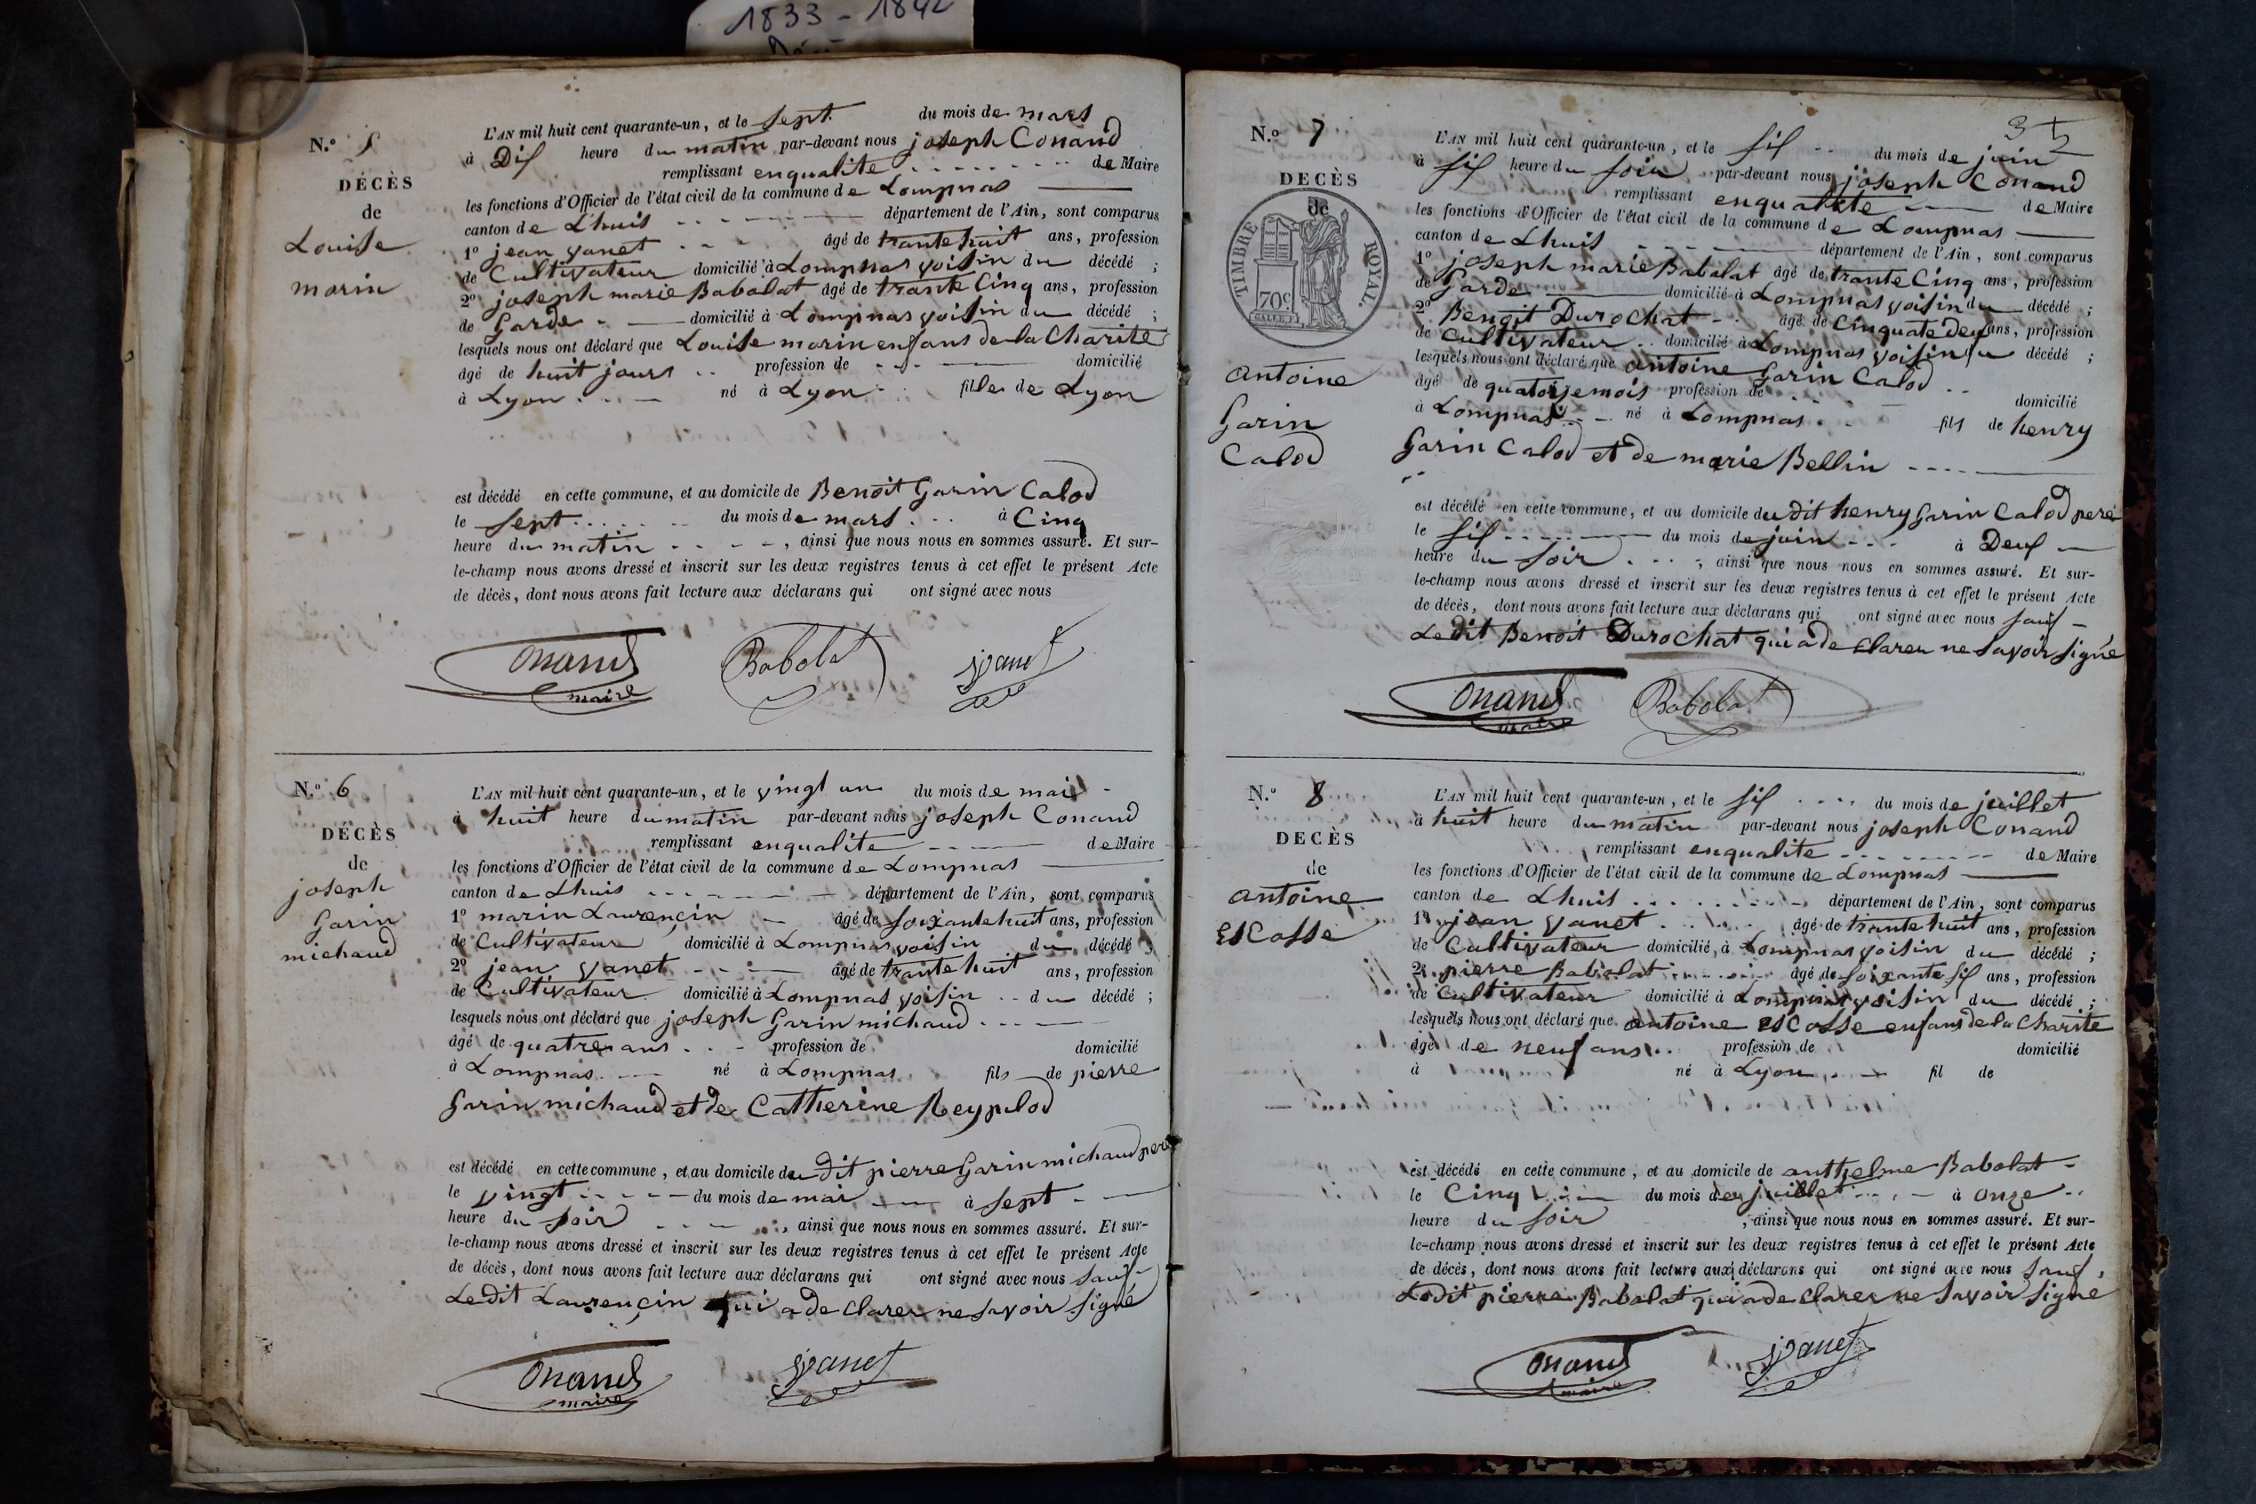 1833 - 1842
N.º 5
DÉCÈS
de
Louise
morin
L'AN mil huit cent quarante-un, et le sept du mois de mars
à Dis heure du matin par-devant nous joseph Conand
remplissant enqualite de Maire
les fonctions d'Officier de l'état civil de la commune de Lompnas
canton de Lhuis département de l'Ain, sont comparus
1º jean yanet âgé de trante huit ans, profession
de Cultivateur domicilié à Lompnas voisin du décédé ;
2º joseph marie Babolat âgé de trante Cinq ans, profession
de Garde domicilié à Lompnas voisin du décédé ;
lesquels nous ont déclaré que Louise morin enfans de la Charité
âgé de huit jours profession de domicilié
à Lyon né à Lyon fille de Lyon
est décédé en cette commune, et au domicile de Benoit Garin Calod
le sept du mois de mars à Cinq
heure du matin , ainsi que nous nous en sommes assuré. Et sur-
le-champ nous avons dressé et inscrit sur les deux registres tenus à cet effet le présent Acte
de décès, dont nous avons fait lecture aux déclarans qui ont signé avec nous
Conand Babolat yanet
maire
N.º 6
DÉCÈS
de
joseph
Garin
michaud
L'AN mil huit cent quarante-un, et le vingt un du mois de mai
à huit heure du matin par-devant nous joseph Conand
remplissant enqualite de Maire
les fonctions d'Officier de l'état civil de la commune de Lompnas
canton de Lhuis département de l'Ain, sont comparus
1º marin Laurençin âgé de soixante huit ans, profession
de Cultivateur domicilié à Lompnas voisin du décédé ;
2º jean yanet âgé de trante huit ans, profession
de Cultivateur domicilié à Lompnas voisin du décédé ;
lesquels nous ont déclaré que joseph Garin michaud
âgé de quatre ans profession de domicilié
à Lompnas né à Lompnas fils de pierre
Garin michaud et de Catherine Reypalod
est décédé en cette commune, et au domicile du dit pierre Garin michaud pere
le vingt du mois de mai à sept
heure du soir , ainsi que nous nous en sommes assuré. Et sur-
le-champ nous avons dressé et inscrit sur les deux registres tenus à cet effet le présent Acte
de décès, dont nous avons fait lecture aux déclarans qui ont signé avec nous sauf
Ledit Laurençin qui a de clarer ne savoir signé
Conand yanet
maire
35
N.º 7
DECÈS
de
TIMBRE ROYAL.
70c
antoine
Garin
Calod
L'AN mil huit cent quarante-un, et le sis du mois de juin
à sis heure du soir par-devant nous joseph Conand
remplissant enqualite de Maire
les fonctions d'Officier de l'état civil de la commune de Lompnas
canton de Lhuis département de l'Ain, sont comparus
1º joseph marie Babolat âgé de trante Cinq ans, profession
de Garde domicilié à Lompnas voisin du décédé ;
2º Benoit Durochat âgé de Cinquate deus ans, profession
de Cultivateur domicilié à Lompnas voisin du décédé ;
lesquels nous ont déclaré que antoine Garin Calod
âgé de quatorze mois profession de domicilié
à Lompnas né à Lompnas fils de henry
Garin Calod et de marie Bellin
est décédé en cette commune, et au domicile du dit henry Garin Calod pere
le sis du mois de juin à Deus
heure du soir , ainsi que nous nous en sommes assuré. Et sur-
le-champ nous avons dressé et inscrit sur les deux registres tenus à cet effet le présent Acte
de décès, dont nous avons fait lecture aux déclarans qui ont signé avec nous sauf
Ledit Benoit Durochat qui a de clarer ne savoir signé
Conand Babolat
maire
N.º 8
DECÈS
de
antoine
Escosse
L'AN mil huit cent quarante-un, et le sis du mois de juillet
à huit heure du matin par-devant nous joseph Conand
remplissant enqualite de Maire
les fonctions d'Officier de l'état civil de la commune de Lompnas
canton de Lhuis département de l'Ain, sont comparus
1º jean yanet âgé de trante huit ans, profession
de Cultivateur domicilié à Lompnas voisin du décédé ;
2º pierre Babolat âgé de soixante sis ans, profession
de Cultivateur domicilié à Lompnas voisin du décédé ;
lesquels nous ont déclaré que antoine escosse enfans de la Charité
âgé de neuf ans profession de domicilié
à né à Lyon fil de
est décédé en cette commune, et au domicile de anthelme Babolat
le Cinq du mois de juillet à onze
heure du soir , ainsi que nous nous en sommes assuré. Et sur-
le-champ nous avons dressé et inscrit sur les deux registres tenus à cet effet le présent Acte
de décès, dont nous avons fait lecture aux déclarans qui ont signé avec nous sauf
Ledit pierre Babolat qui a de clarer ne savoir signé
Conand yanet
maire